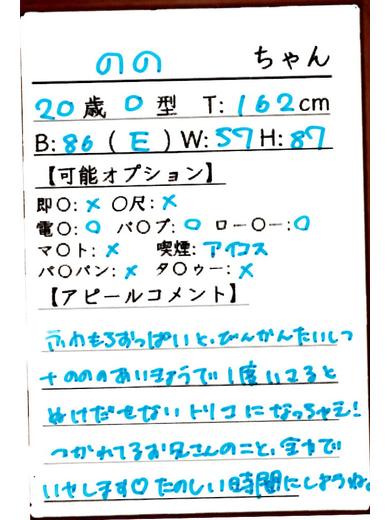 のの ちゃん
20歳 O型 T:162cm
B:86(E)W:57H:87
【可能オプション】
即〇:× 〇尺:×
電〇:〇 バ〇ブ:〇 ロー〇ー:〇
マ〇ト:× 喫煙:アイコス
パ〇パン:× タ〇ゥー:×
【アピールコメント】
ふわもちおっぱいと、びんかんたいしつ
+ののあいきょうで1度いると
ぬけだせないトリコになっちゃえ!
つかれてるお兄さんのこと、全力で
いやします♡たのしい時間にしようね。